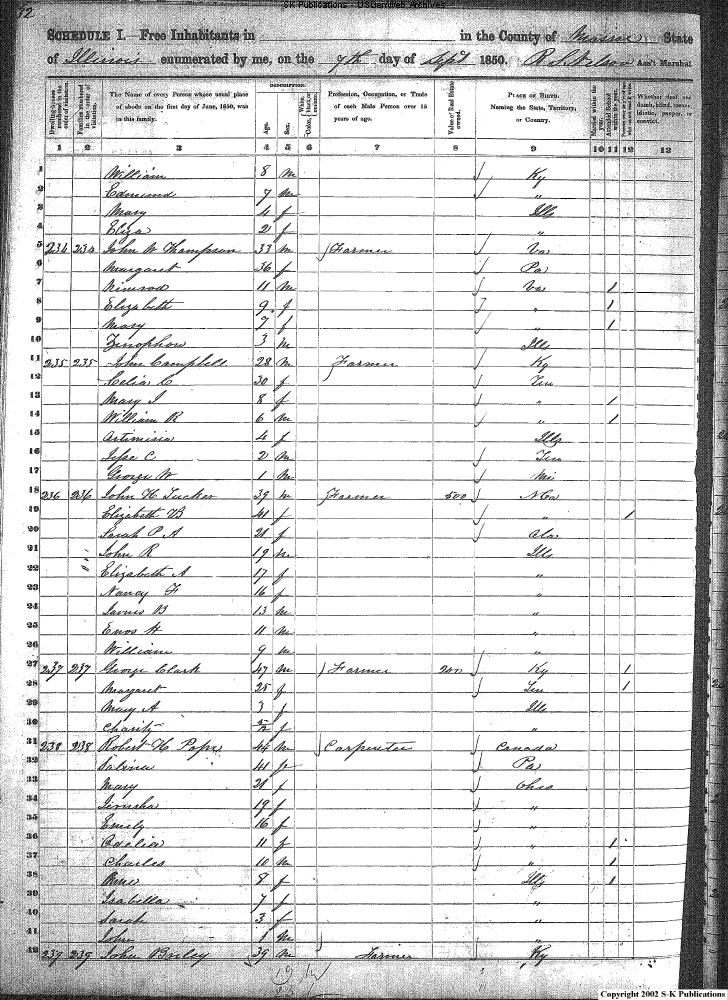 SK Publications - USGenWeb Archives
52
SCHEDULE I. Free Inhabitants in in the County of State
of Illinois enumerated by me, on the 7th day of Sept 1850. Ass't Marshal
DESCRIPTION.
Dwelling-houses numbered in the order of visitation. Families numbered in the order of visitation. The Name of every Person whose usual place of abode on the first day of June, 1850, was in this family. Age. Sex. Color, White, black or mulatto. Profession, Occupation, or Trade of each Male Person over 15 years of age. Value of Real Estate owned. PLACE OF BIRTH. Naming the State, Territory, or Country. Married within the year. Attended School within the year. Whether deaf and dumb, blind, insane, idiotic, pauper, or convict.
1 2 3 4 5 6 7 8 9 10 11 12 13
1 William 8 m Ky
2 Edmund 7 m "
3 Mary 4 f Ills
4 Eliza 2 f "
5 234 234 John W Thompson 33 m Farmer Va
6 Margaret 36 f Pa
7 Nimrod 11 m Va 1
8 Elizabeth 9 f " 1
9 Mary 7 f " 1
10 Zenophon 3 m Ills
11 235 235 John Campbell 28 m Farmer Ky
12 Celia C 30 f Ten
13 Mary J 8 f " 1
14 William R 6 m " 1
15 Artimisia 4 f Ills
16 Jesse C 2 m Ten
17 George W 1 m
18 236 236 John H Tucker 39 m Farmer 500
19 Elizabeth B 41 f " 1
20 Sarah P. A 21 f Ala
21 John R 19 m Ills
22 Elizabeth A 17 f "
23 Nancy F 16 f "
24 James B 13 m "
25 Enos H 11 m "
26 William 9 m "
27 237 237 George Clark 47 m Farmer 200 Ky 1
28 Margaret 25 f Ten 1
29 Mary A 3 f Ills
30 Charity f "
31 238 238 Robert H Pope 44 m Carpenter Canada
32 Salina 41 f Pa
33 Mary 21 f Ohio
34 Jerusha 19 f "
35 Emily 16 f "
36 11 f " 1
37 Charles 10 m " 1
38 8 f Ills 1
39 Isabella 7 f "
40 Sarah 3 f "
41 John 1 m
42 239 239 John Briley 39 m Farmer Ky
Copyright 2002 S-K Publications